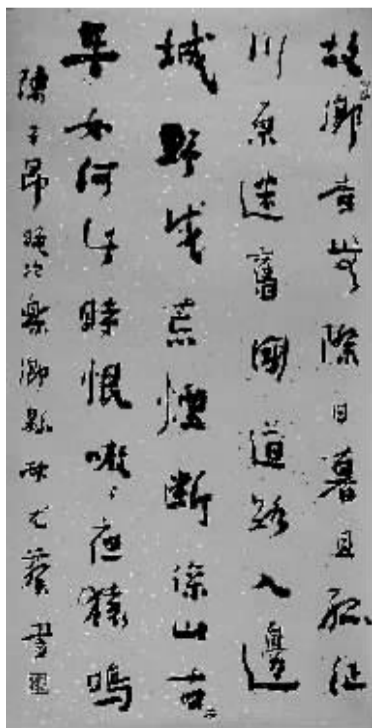 故鄉杳無際日暮且孤征
川原迷舊國道路入邊
城野戍荒煙斷深山古木
平如何此時恨噭噭夜猿鳴
陳子昂晚次樂鄉縣 書